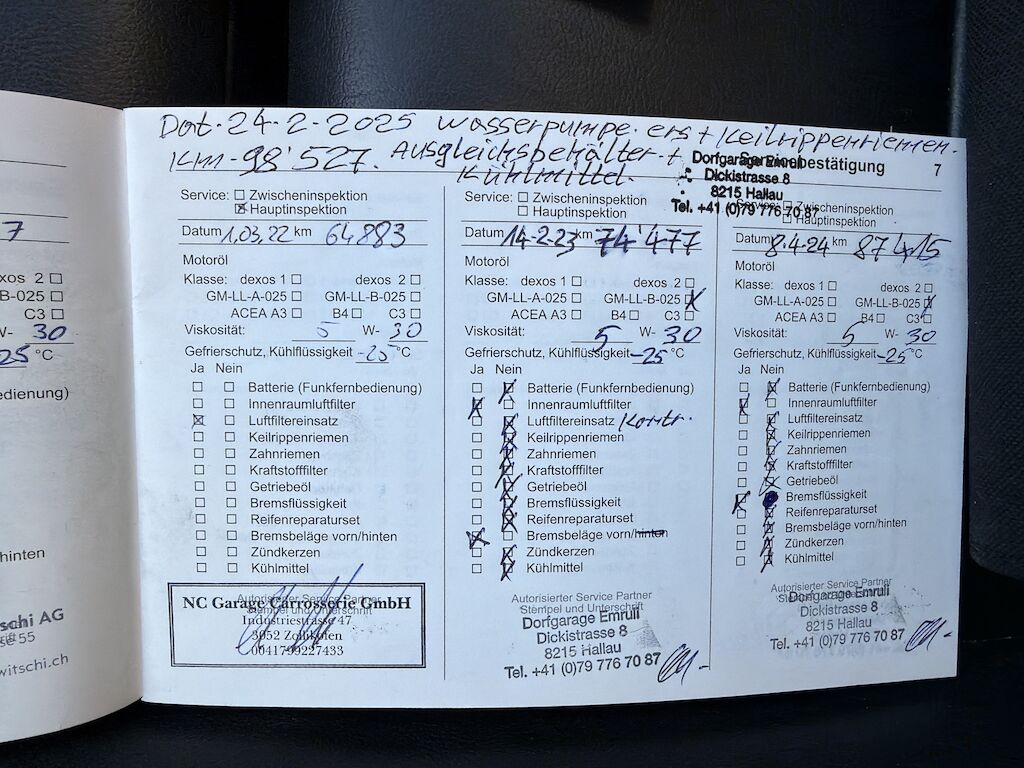 Dat. 24-2-2025 Wasserpumpe. ers + Keilrippenriemen.
KM-98'527. Ausgleichsbehälter +
Kühlmittel.
Servicebestätigung 7
Dorfgarage Emruli
Dickistrasse 8
8215 Hallau
Tel. +41 (0)79 776 70 87
Service: Zwischeninspektion
Hauptinspektion
Datum 1.03.22 km 64883
Motoröl
Klasse: dexos 1 dexos 2
GM-LL-A-025 GM-LL-B-025
ACEA A3 B4 C3
Viskosität: 5 W- 30
Gefrierschutz, Kühlflüssigkeit -25 °C
Ja Nein
Batterie (Funkfernbedienung)
Innenraumluftfilter
Luftfiltereinsatz
Keilrippenriemen
Zahnriemen
Kraftstofffilter
Getriebeöl
Bremsflüssigkeit
Reifenreparaturset
Bremsbeläge vorn/hinten
Zündkerzen
Kühlmittel
Autorisierter Service Partner
Stempel und Unterschrift
NC Garage Carrosserie GmbH
Industriestrasse 47
3052 Zollikofen
0041799227433
Service: Zwischeninspektion
Hauptinspektion
Datum 14-2-23 km 74'477
Motoröl
Klasse: dexos 1 dexos 2
GM-LL-A-025 GM-LL-B-025
ACEA A3 B4 C3
Viskosität: 5 W- 30
Gefrierschutz, Kühlflüssigkeit -25 °C
Ja Nein
Batterie (Funkfernbedienung)
Innenraumluftfilter
Luftfiltereinsatz Kontr.
Keilrippenriemen
Zahnriemen
Kraftstofffilter
Getriebeöl
Bremsflüssigkeit
Reifenreparaturset
Bremsbeläge vorn/hinten
Zündkerzen
Kühlmittel
Autorisierter Service Partner
Stempel und Unterschrift
Dorfgarage Emruli
Dickistrasse 8
8215 Hallau
Tel. +41 (0)79 776 70 87
Service: Zwischeninspektion
Hauptinspektion
Datum 8-4-24 km 87415
Motoröl
Klasse: dexos 1 dexos 2
GM-LL-A-025 GM-LL-B-025
ACEA A3 B4 C3
Viskosität: 5 W- 30
Gefrierschutz, Kühlflüssigkeit -25 °C
Ja Nein
Batterie (Funkfernbedienung)
Innenraumluftfilter
Luftfiltereinsatz
Keilrippenriemen
Zahnriemen
Kraftstofffilter
Getriebeöl
Bremsflüssigkeit
Reifenreparaturset
Bremsbeläge vorn/hinten
Zündkerzen
Kühlmittel
Autorisierter Service Partner
Dorfgarage Emruli
Dickistrasse 8
8215 Hallau
Tel. +41 (0)79 776 70 87
7
dexos 2
B-025
C3
W- 30
25 °C
edienung)
hinten
schi AG
se 55
witschi.ch